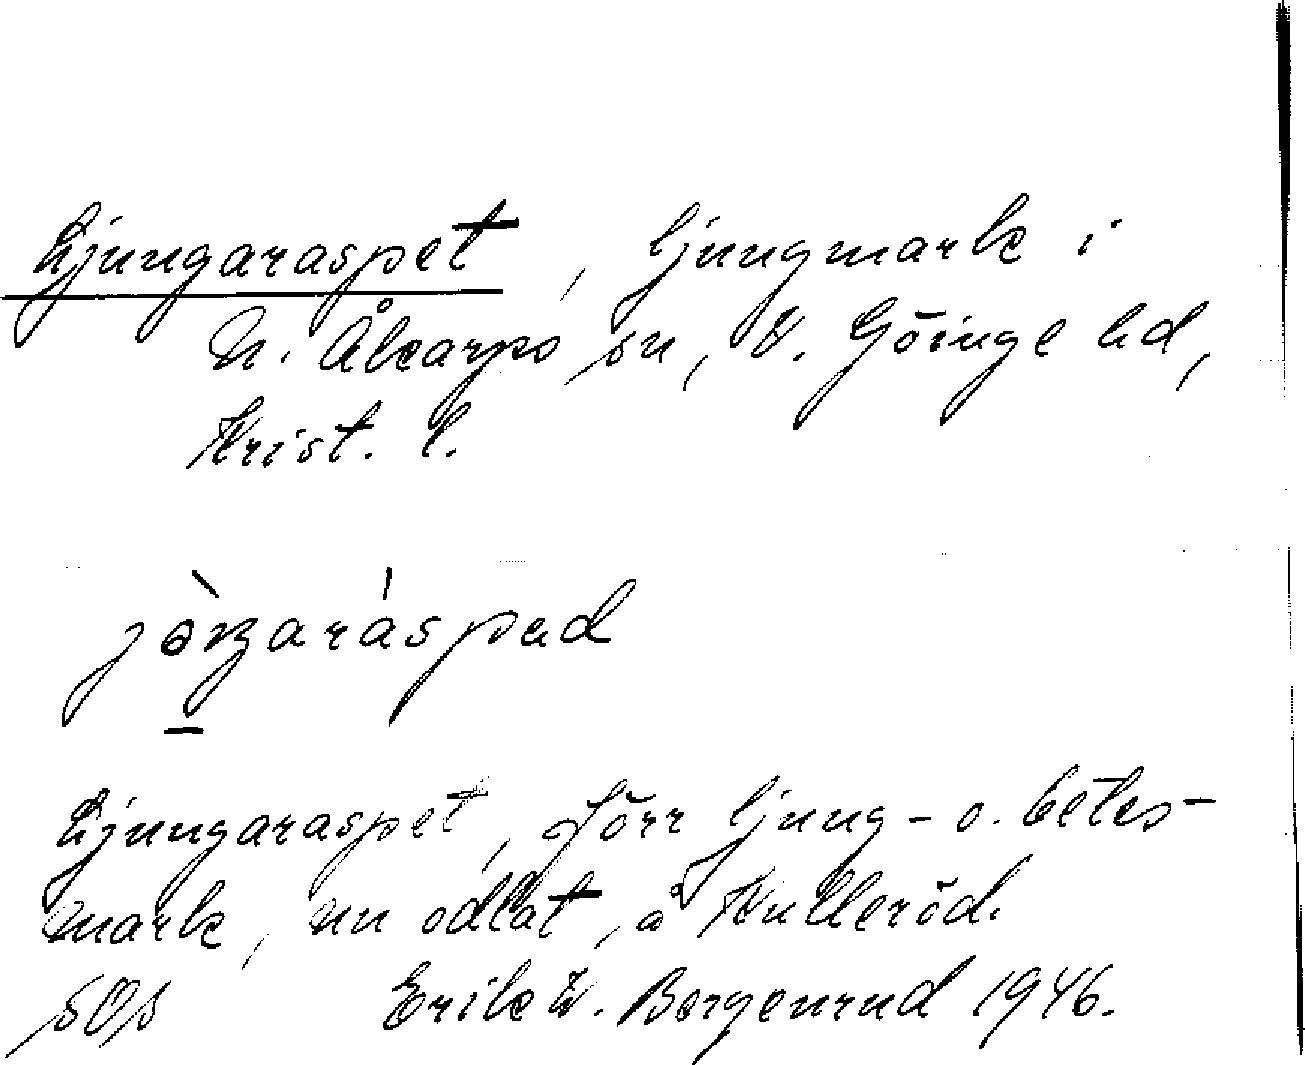 Ljungaraspet, ljungmark i
N. Åkarps sn, V. Göinge hd,
Krist. l.
Ljungaraspet, förr ljung- o. betes-
mark, nu odlat, å Kulleröd.
Erik W. Borgenrud 1946.